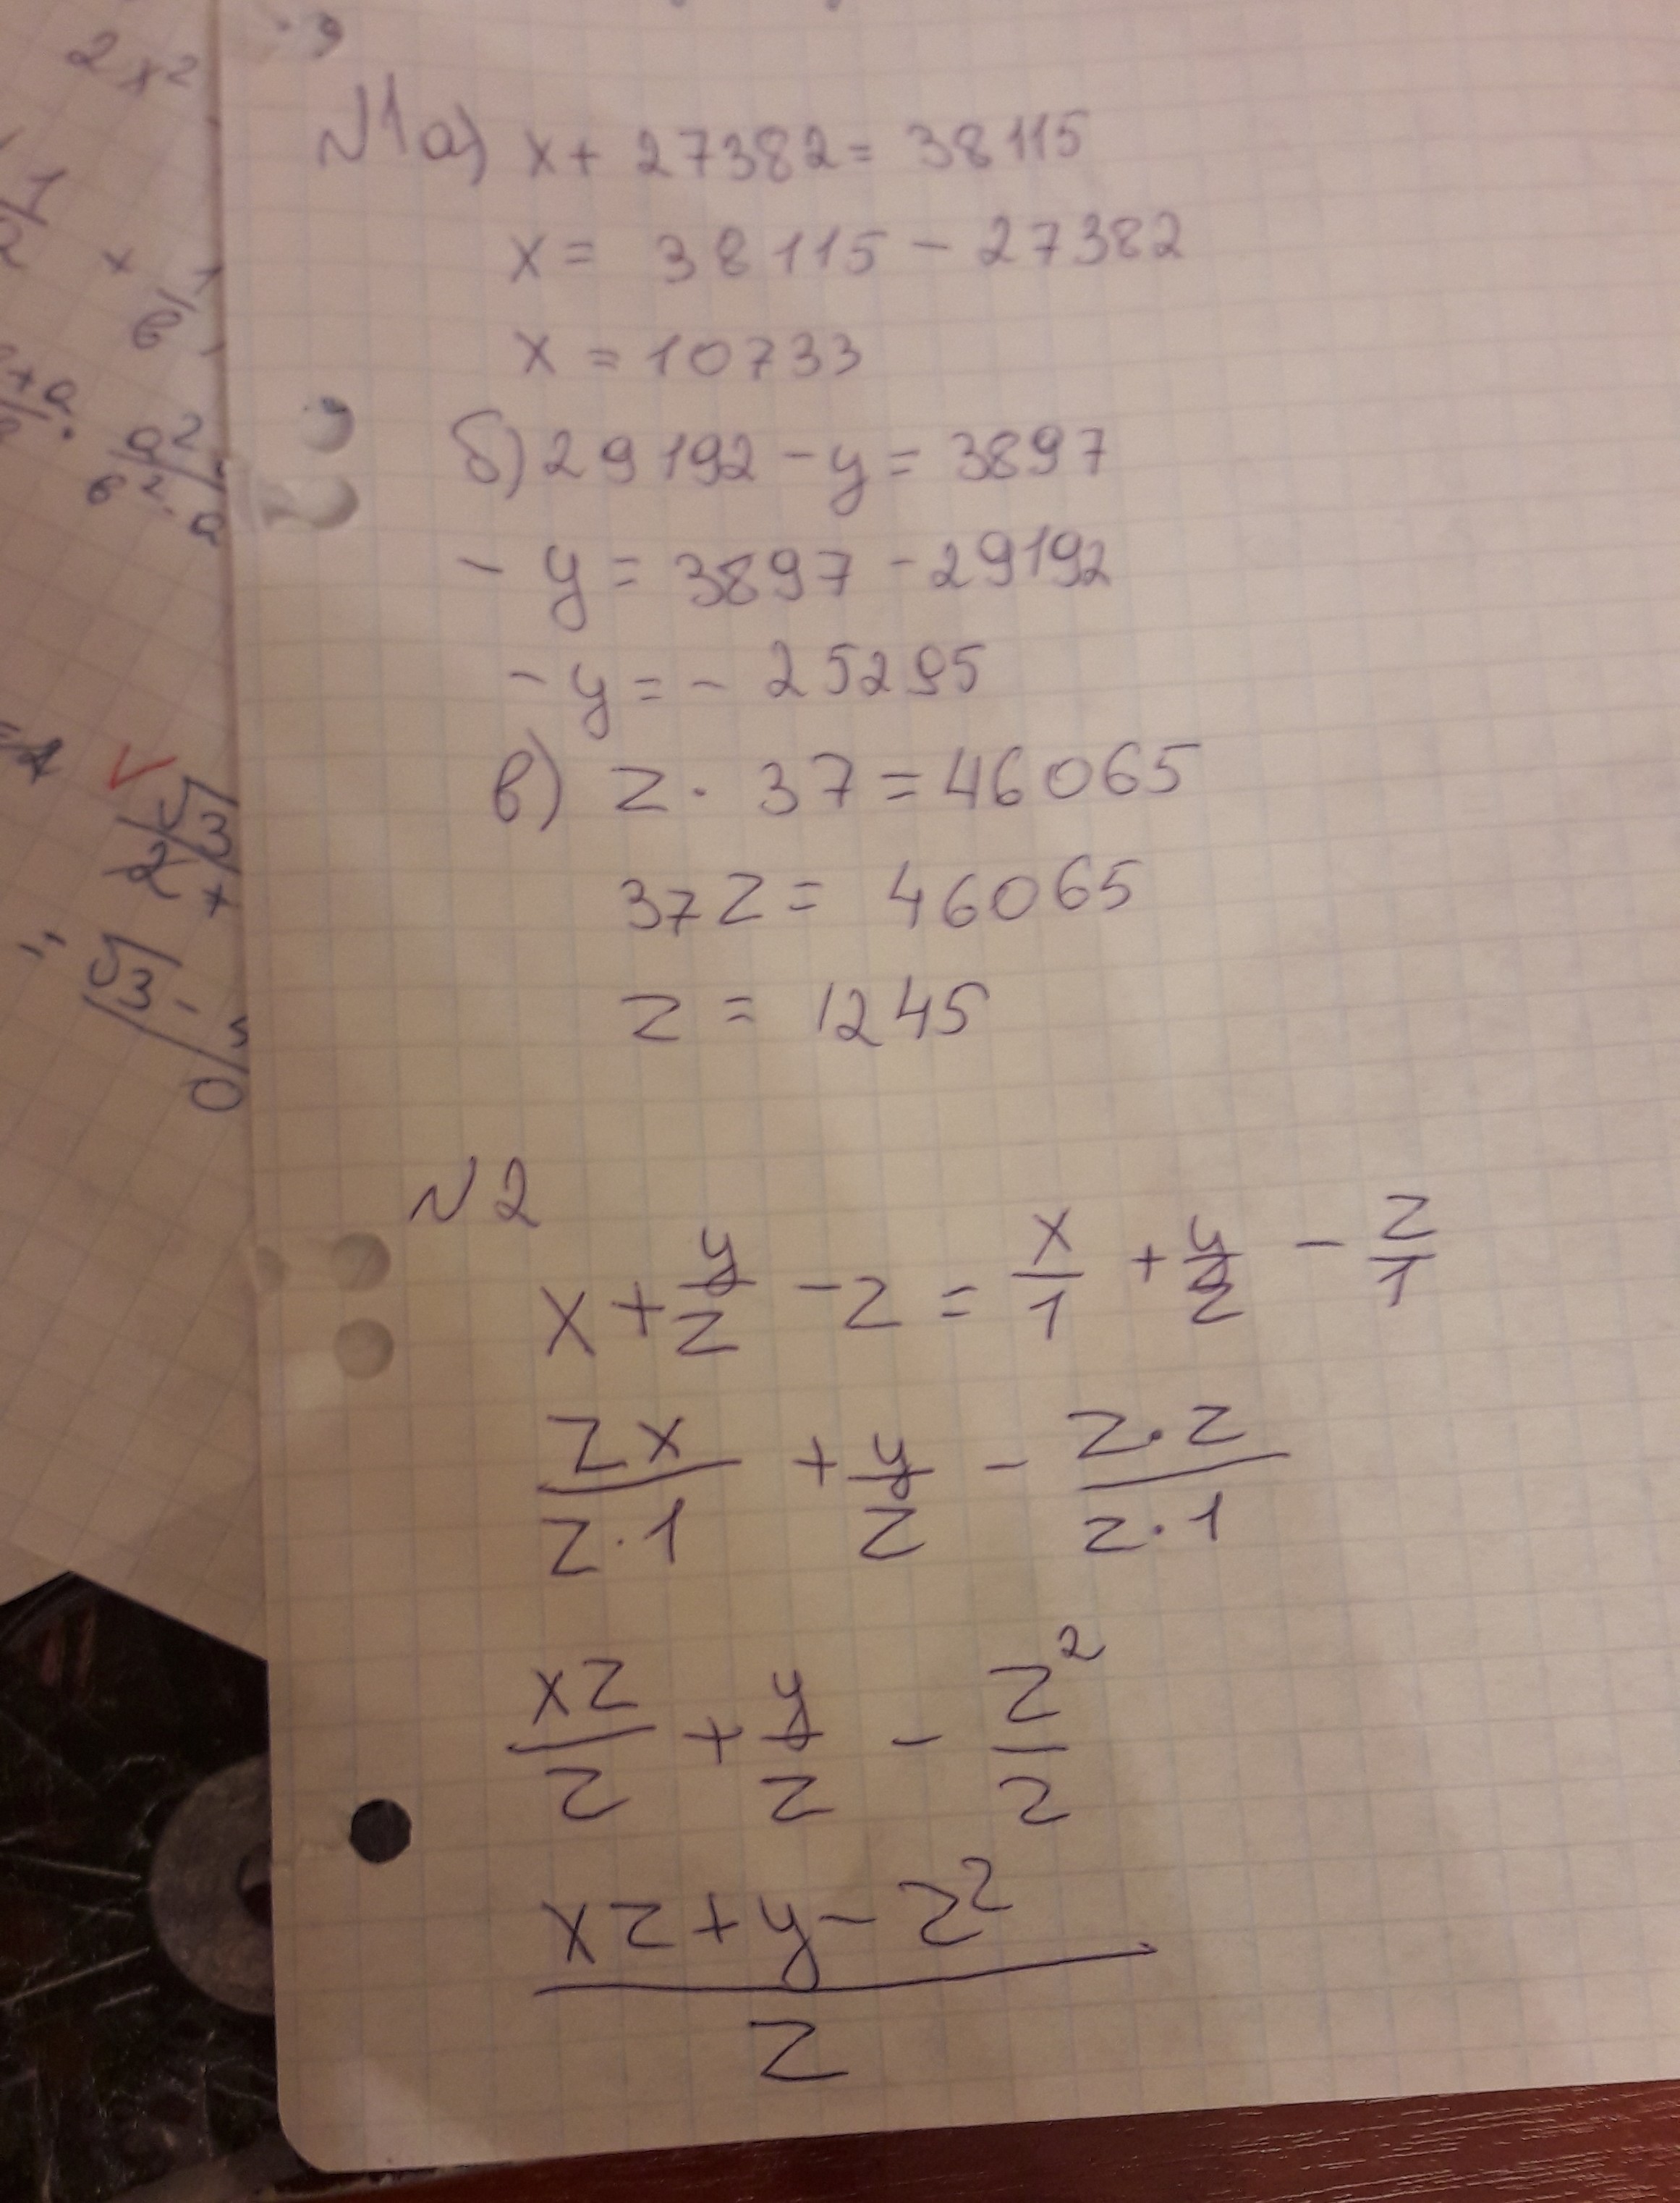 2x²
№1 а) x + 27382 = 38115
x = 38115 - 27382
x = 10733
б) 29192 - y = 3897
- y = 3897 - 29192
- y = - 25295
в) z · 37 = 46065
37z = 46065
z = 1245
№2
x + y/z - z = x/1 + y/z - z/1
zx/z·1 + y/z - z·z/z·1
xz/z + y/z - z²/z
xz + y - z²/z